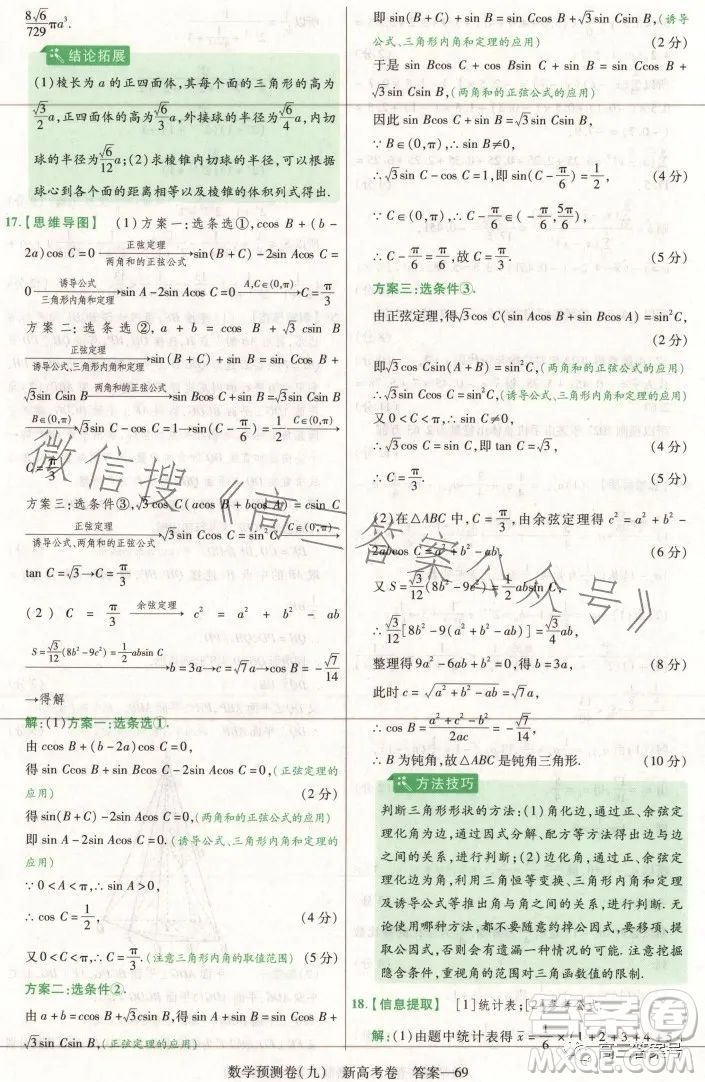 8√6/729 πa³.
结论拓展
(1)棱长为 a 的正四面体,其每个面的三角形的高为
√3/2 a,正四面体的高为√6/3 a,外接球的半径为√6/4 a,内切
球的半径为√6/12 a;(2)求棱锥内切球的半径,可以根据
球心到各个面的距离相等以及棱锥的体积列式得出.
17.【思维导图】 (1)方案一:选条选①,ccos B+(b-
2a)cos C=0 正弦定理/两角和的正弦公式→sin(B+C)-2sin Acos C=
0 诱导公式/三角形内角和定理→sin A-2sin Acos C=0 A,C∈(0,π)→C=π/3
方案二:选条选②,a+b=ccos B+√3csin B
正弦定理/诱导公式、三角形内角和定理→sin(B+C)+sin B=sin Ccos B+
√3sin Csin B 两角和的正弦公式→sin Bcos C+sin B=√3sin Csin B
B∈(0,π)→√3sin C-cos C=1→sin(C-π/6)=1/2 C∈(0,π)→
C=π/3
方案三:选条件③,√3cos C(acos B+bcos A)=csin C
正弦定理/诱导公式、两角和的正弦公式→√3cos Csin C=sin²C C∈(0,π)→
tan C=√3→C=π/3
(2) C=π/3 余弦定理→c²=a²+b²-ab
S=√3/12(8b²-9c²)=1/2absin C→b=3a→c=√7a→cos B=-√7/14
→得解
解:(1)方案一:选条选①.
由 ccos B+(b-2a)cos C=0,
得 sin Ccos B+sin Bcos C-2sin Acos C=0,(正弦定理的
应用) (2 分)
即 sin(B+C)-2sin Acos C=0,(两角和的正弦公式的应用)
即 sin A-2sin Acos C=0.(诱导公式、三角形内角和定理的
应用)
∵0<A<π,∴sin A≠0,
∴cos C=1/2, (4 分)
又0<C<π,∴C=π/3.(注意三角形内角的取值范围) (5 分)
方案二:选条件②.
由 a+b=ccos B+√3csin B,
得 sin A+sin B=sin Ccos B+
√3sin Csin B,(正弦定理的应用)
即 sin(B+C)+sin B=sin Ccos B+√3sin Csin B,(诱导
公式、三角形内角和定理的应用) (2 分)
于是 sin Bcos C+cos Bsin C+sin B=sin Ccos B+
√3sin Csin B,(两角和的正弦公式的应用)
因此 sin Bcos C+sin B=√3sin Csin B.
∵B∈(0,π),∴sin B≠0,
∴√3sin C-cos C=1,即 sin(C-π/6)=1/2, (4 分)
∵C∈(0,π),∴C-π/6∈(-π/6,5π/6),
∴C-π/6=π/6,故 C=π/3. (5 分)
方案三:选条件③.
由正弦定理,得√3cos C(sin Acos B+sin Bcos A)=sin²C,
(2 分)
即√3cos Csin(A+B)=sin²C,(两角和的正弦公式的应用)
∴√3sin Ccos C=sin²C,(诱导公式、三角形内角和定理的应用)
又 0<C<π,∴sin C≠0,
∴√3cos C=sin C,即 tan C=√3, (4 分)
∴C=π/3. (5 分)
(2)在△ABC 中,C=π/3,由余弦定理得 c²=a²+b²-
2abcos C=a²+b²-ab, (6 分)
又 S=√3/12(8b²-9c²)=1/2absin C,
∴√3/12[8b²-9(a²+b²-ab)]=√3/4ab,
整理得 9a²-6ab+b²=0,得 b=3a, (8 分)
此时 c=√(a²+b²-ab)=√7a,
∴cos B=(a²+c²-b²)/2ac=-√7/14,
∴B 为钝角,故△ABC 是钝角三角形. (10 分)
方法技巧
判断三角形形状的方法:(1)角化边,通过正、余弦定
理化角为边,通过因式分解、配方等方法得出边与边
之间的关系,进行判断;(2)边化角,通过正、余弦定理
化边为角,利用三角恒等变换、三角形内角和定理及
诱导公式等推出角与角之间的关系,进行判断. 无论
使用哪种方法,都不要随意约掉公因式,要移项、提
取公因式,否则会遗漏一种情况的可能. 注意挖掘
隐含条件,重视角的范围对三角函数值的限制.
18.【信息提取】 [1]统计表;[2]参考公式.
解:(1)由题中统计表得 x̄=1/6×(1+2+3+4+5+
数学预测卷(九) 新高考卷 答案—69
微信搜《高三答案公众号》
答案卷
高三答案号